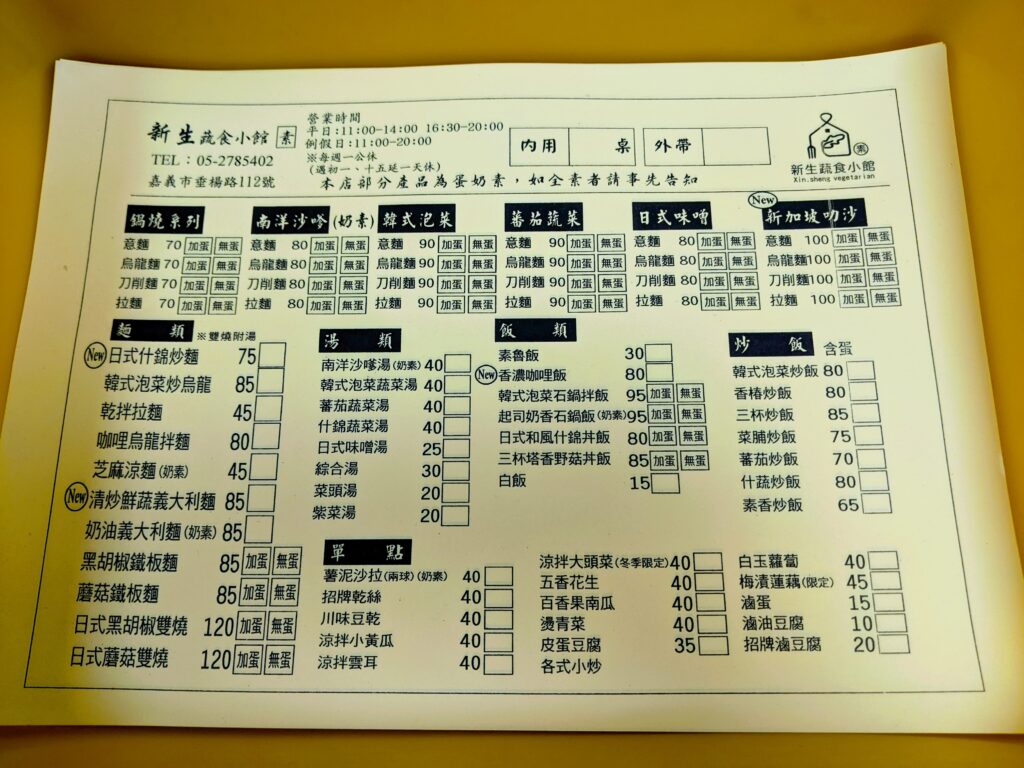 新生蔬食小館 素
TEL：05-2785402
嘉義市垂楊路112號
營業時間
平日:11:00-14:00 16:30-20:00
例假日:11:00-20:00
※每週一公休
(遇初一、十五延一天休)
本店部分產品為蛋奶素，如全素者請事先告知
內用 桌 外帶
素
新生蔬食小館
Xin.sheng vegetarian
鍋燒系列
意麵 70 加蛋 無蛋
烏龍麵 70 加蛋 無蛋
刀削麵 70 加蛋 無蛋
拉麵 70 加蛋 無蛋
南洋沙嗲(奶素)
意麵 80 加蛋 無蛋
烏龍麵 80 加蛋 無蛋
刀削麵 80 加蛋 無蛋
拉麵 80 加蛋 無蛋
韓式泡菜
意麵 90 加蛋 無蛋
烏龍麵 90 加蛋 無蛋
刀削麵 90 加蛋 無蛋
拉麵 90 加蛋 無蛋
蕃茄蔬菜
意麵 90 加蛋 無蛋
烏龍麵 90 加蛋 無蛋
刀削麵 90 加蛋 無蛋
拉麵 90 加蛋 無蛋
日式味噌
意麵 80 加蛋 無蛋
烏龍麵 80 加蛋 無蛋
刀削麵 80 加蛋 無蛋
拉麵 80 加蛋 無蛋
New 新加坡叻沙
意麵 100 加蛋 無蛋
烏龍麵 100 加蛋 無蛋
刀削麵 100 加蛋 無蛋
拉麵 100 加蛋 無蛋
麵類 ※雙燒附湯
New 日式什錦炒麵 75
韓式泡菜炒烏龍 85
乾拌拉麵 45
咖哩烏龍拌麵 80
芝麻涼麵(奶素) 45
New 清炒鮮蔬義大利麵 85
奶油義大利麵(奶素) 85
黑胡椒鐵板麵 85 加蛋 無蛋
蘑菇鐵板麵 85 加蛋 無蛋
日式黑胡椒雙燒 120 加蛋 無蛋
日式蘑菇雙燒 120 加蛋 無蛋
湯類
南洋沙嗲湯(奶素) 40
韓式泡菜蔬菜湯 40
蕃茄蔬菜湯 40
什錦蔬菜湯 40
日式味噌湯 25
綜合湯 30
菜頭湯 20
紫菜湯 20
飯類
素魯飯 30
New 香濃咖哩飯 80
韓式泡菜石鍋拌飯 95 加蛋 無蛋
起司奶香石鍋飯(奶素) 95 加蛋 無蛋
日式和風什錦丼飯 80 加蛋 無蛋
三杯塔香野菇丼飯 85 加蛋 無蛋
白飯 15
炒飯 含蛋
韓式泡菜炒飯 80
香椿炒飯 80
三杯炒飯 85
菜脯炒飯 75
蕃茄炒飯 70
什蔬炒飯 80
素香炒飯 65
單點
薯泥沙拉(兩球)(奶素) 40
招牌乾絲 40
川味豆乾 40
涼拌小黃瓜 40
涼拌雲耳 40
涼拌大頭菜(冬季限定) 40
五香花生 40
百香果南瓜 40
燙青菜 40
皮蛋豆腐 35
各式小炒
白玉蘿蔔 40
梅漬蓮藕(限定) 45
滷蛋 15
滷油豆腐 10
招牌滷豆腐 20